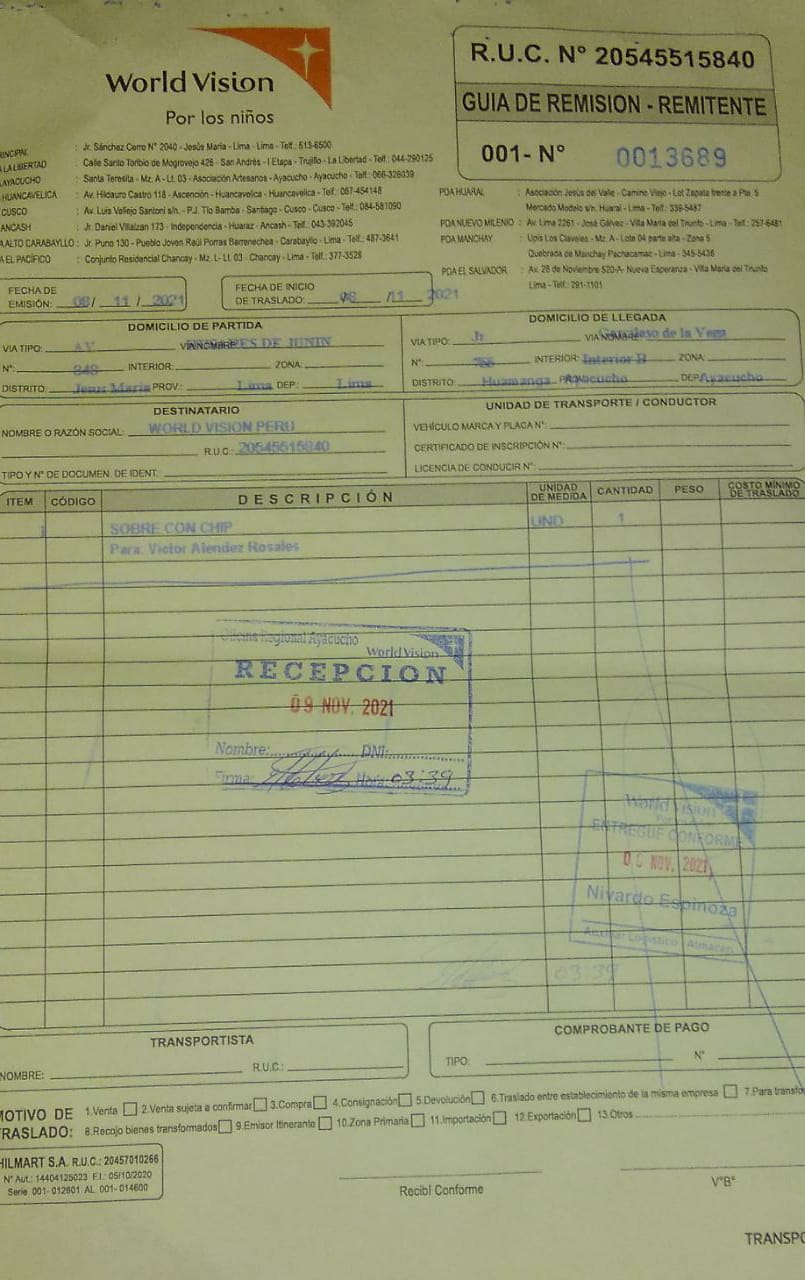 World Vision
Por los niños
R.U.C. N° 20545515840
GUIA DE REMISION - REMITENTE
001- N° 0013689
: Jr. Sánchez Cerro N° 2040 - Jesús María - Lima - Lima - Telf.: 613-6500
LA LIBERTAD : Calle Santo Toribio de Mogrovejo 426 - San Andrés - I Etapa - Trujillo - La Libertad - Telf.: 044-290125
AYACUCHO : Santa Teresita - Mz. A - Lt. 03 - Asociación Artesanos - Ayacucho - Ayacucho - Telf.: 066-326039
HUANCAVELICA : Av. Hildauro Castro 118 - Ascensión - Huancavelica - Huancavelica - Telf.: 067-454148
CUSCO : Av. Luis Vallejo Santoni s/n. - P.J. Tío Bamba - Santiago - Cusco - Cusco - Telf.: 084-581090
ANCASH : Jr. Daniel Villaizan 173 - Independencia - Huaraz - Ancash - Telf.: 043-392045
ALTO CARABAYLLO : Jr. Puno 130 - Pueblo Joven Raúl Porras Barrenechea - Carabayllo - Lima - Telf.: 487-3641
EL PACÍFICO : Conjunto Residencial Chancay - Mz. L- Lt. 03 - Chancay - Lima - Telf.: 377-3528
PDA HUARAL : Asociación Jesús del Valle - Camino Viejo - Lot Zapata frente a Pte. 5
Mercado Modelo s/n. Huaral - Lima - Telf.: 339-5487
PDA NUEVO MILENIO : Av. Lima 2261 - José Gálvez - Villa María del Triunfo - Lima - Telf.: 257-6481
PDA MANCHAY : Upis Los Claveles - Mz. A - Lote 04 parte alta - Zona 5
Quebrada de Manchay Pachacamac - Lima - 345-5436
PDA EL SALVADOR : Av. 26 de Noviembre 520-A- Nueva Esperanza - Villa María del Triunfo
Lima - Telf.: 291-1101
FECHA DE
EMISIÓN: 08/ 11 / 2021
FECHA DE INICIO
DE TRASLADO: 08 /11 2021
DOMICILIO DE PARTIDA
VIA TIPO: AV VIA NOMBRE: DE JUNIN
N°: 840 INTERIOR: ZONA:
DISTRITO: Jesus Maria PROV.: Lima DEP.: Lima
DOMICILIO DE LLEGADA
VIA TIPO: Jr VIA NOMBRE: Garcilaso de la Vega
N°: INTERIOR: Interior B ZONA:
DISTRITO: Huamanga PROV: Ayacucho DEP: Ayacucho
DESTINATARIO
NOMBRE O RAZÓN SOCIAL: WORLD VISION PERU
R.U.C.: 20545515840
TIPO Y N° DE DOCUMEN. DE IDENT.
UNIDAD DE TRANSPORTE / CONDUCTOR
VEHÍCULO MARCA Y PLACA N°:
CERTIFICADO DE INSCRIPCIÓN N°:
LICENCIA DE CONDUCIR N°:
ITEM CÓDIGO DESCRIPCIÓN UNIDAD DE MEDIDA CANTIDAD PESO COSTO MÍNIMO DE TRASLADO
1 SOBRE CON CHIP UND 1
Para: Victor Alendez Rosales
Oficina Regional Ayacucho
World Vision
RECEPCION
09 NOV. 2021
Nombre: DNI:
Firma: Hora: 03:39
World Vision
ENTREGUE CONFORME
NOV. 2021
Nivardo Espinoza
Auxiliar Logistico Almacen
03:39
TRANSPORTISTA
NOMBRE: R.U.C.:
COMPROBANTE DE PAGO
TIPO: N°
MOTIVO DE TRASLADO:
1.Venta 2.Venta sujeta a confirmar 3.Compra 4.Consignación 5.Devolución 6.Traslado entre establecimiento de la misma empresa 7.Para
8.Recojo bienes transformados 9.Emisor Itinerante 10.Zona Primaria 11.Importación 12.Exportación 13.Otros
HILMART S.A. R.U.C.: 20457010266
N° Aut.: 14404125023 F.I. 05/10/2020
Serie 001- 012601 AL 001- 014600
Recibí Conforme
V°B°